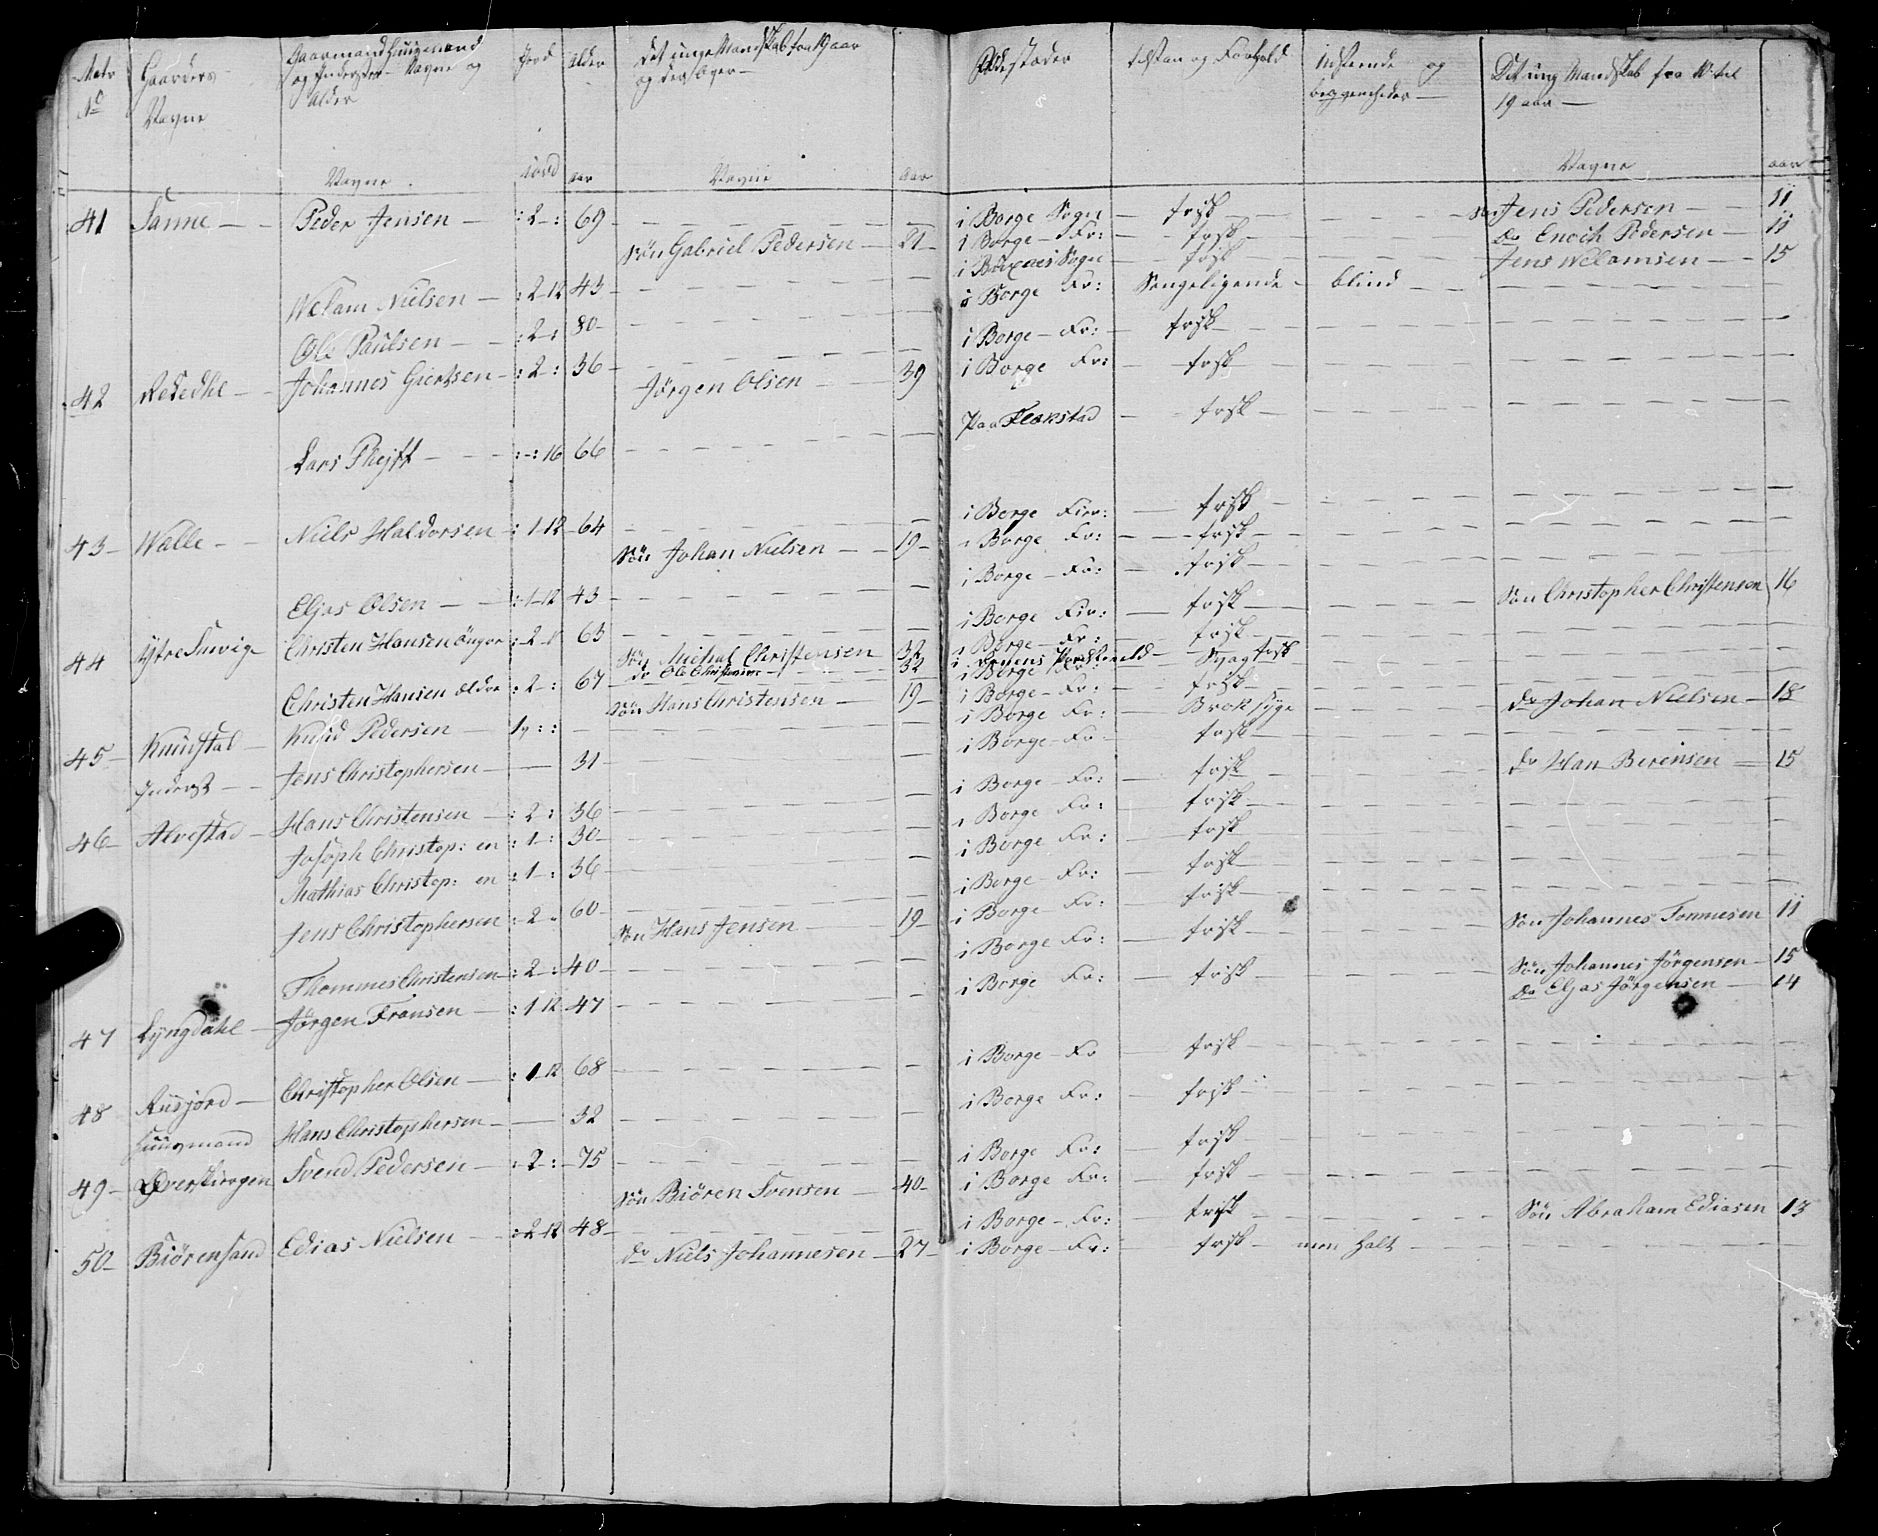 Matr No
Gaardens Navne
Gaarmand Huusmand og Inderster Navne og Alder
Jord
Alder
Det unge Mandskab fra 19 aar og derover
tilstan og Forhold
Udseende og beqvemheder
Det ung Mandskab fra 10 til 19 aar
Navne
aar
Navne
aar
Navne
aar
41 Sanne Peder Jensen :2-: 69 i Borge Sogn frisk Søn Jens Pedersen 11
Søn Gabriel Pedersen 21 i Borge Fr: frisk Do Enoch Pedersen 11
Welam Nielsen :2-12 43 i Sogn frisk Jens Welamsen 15
Ole Paulsen :2: 80 i Borge Fr: Sengeligende blind
42 Johannes Giertsen :2: 36 i Borge Fr: frisk
Jørgen Olsen 39 i Borge Fr: frisk
Lars :-:16 66 Paa Flakstad frisk
43 Walle Niels Haldorsen :1-12 64 i Borge Fr: frisk
Søn Johan Nielsen 19 i Borge Fr: frisk
Eljas Olsen :1-12 43 i Borge Fr: frisk
44 Ytre Christen Hansen Ønger :2-: 63 i Borge Fr: frisk Søn Christopher Christensen 16
Søn Michal Christensen 32 i Borge Fr: frisk
do Ole Christensen 32 i Svag frisk
Christen Hansen ældre :2-: 67 i Borge Fr: frisk
Søn Hans Christensen 19 i Borge Fr: frisk
45 Knudstad Knud Pedersen i Borge Fr: Broksyge do Johan Nielsen 18
Inderst Jens Christophersen 31 i Borge Fr: frisk
46 Alvestad Hans Christensen :2: 36 i Borge Fr: frisk do Han Berensen 15
Joseph Christop: en :1-: 30 i Borge Fr: frisk
Mathias Christop: en :1-: 36 i Borge Fr: frisk
Jens Christophersen :2-: 60 i Borge Fr: frisk
Søn Hans Jensen 19 i Borge Fr: frisk
Thommes Christensen :2-: 40 i Borge Fr: frisk Søn Johannes Tommesen 11
47 Lyngdahl Jørgen Fransen :1-12 47 i Borge Fr: frisk Søn Johannes Jørgensen 15
Do Eljas Jørgensen 14
48 Rusjord Christopher Olsen :1-12 68 i Borge Fr frisk
Huusmand Hans Christophersen 32 i Borge Fr: frisk
49 Svend Pedersen :2-: 75 i Borge Fr: frisk
Søn Biören Svensen 40 i Borge Fr: frisk
50 Biörensand Edias Nielsen :2-12 48 i Borge Fr: frisk Søn Abraham Ediasen 13
do Niels Johannesen 27 i Borge Fr: frisk men halt